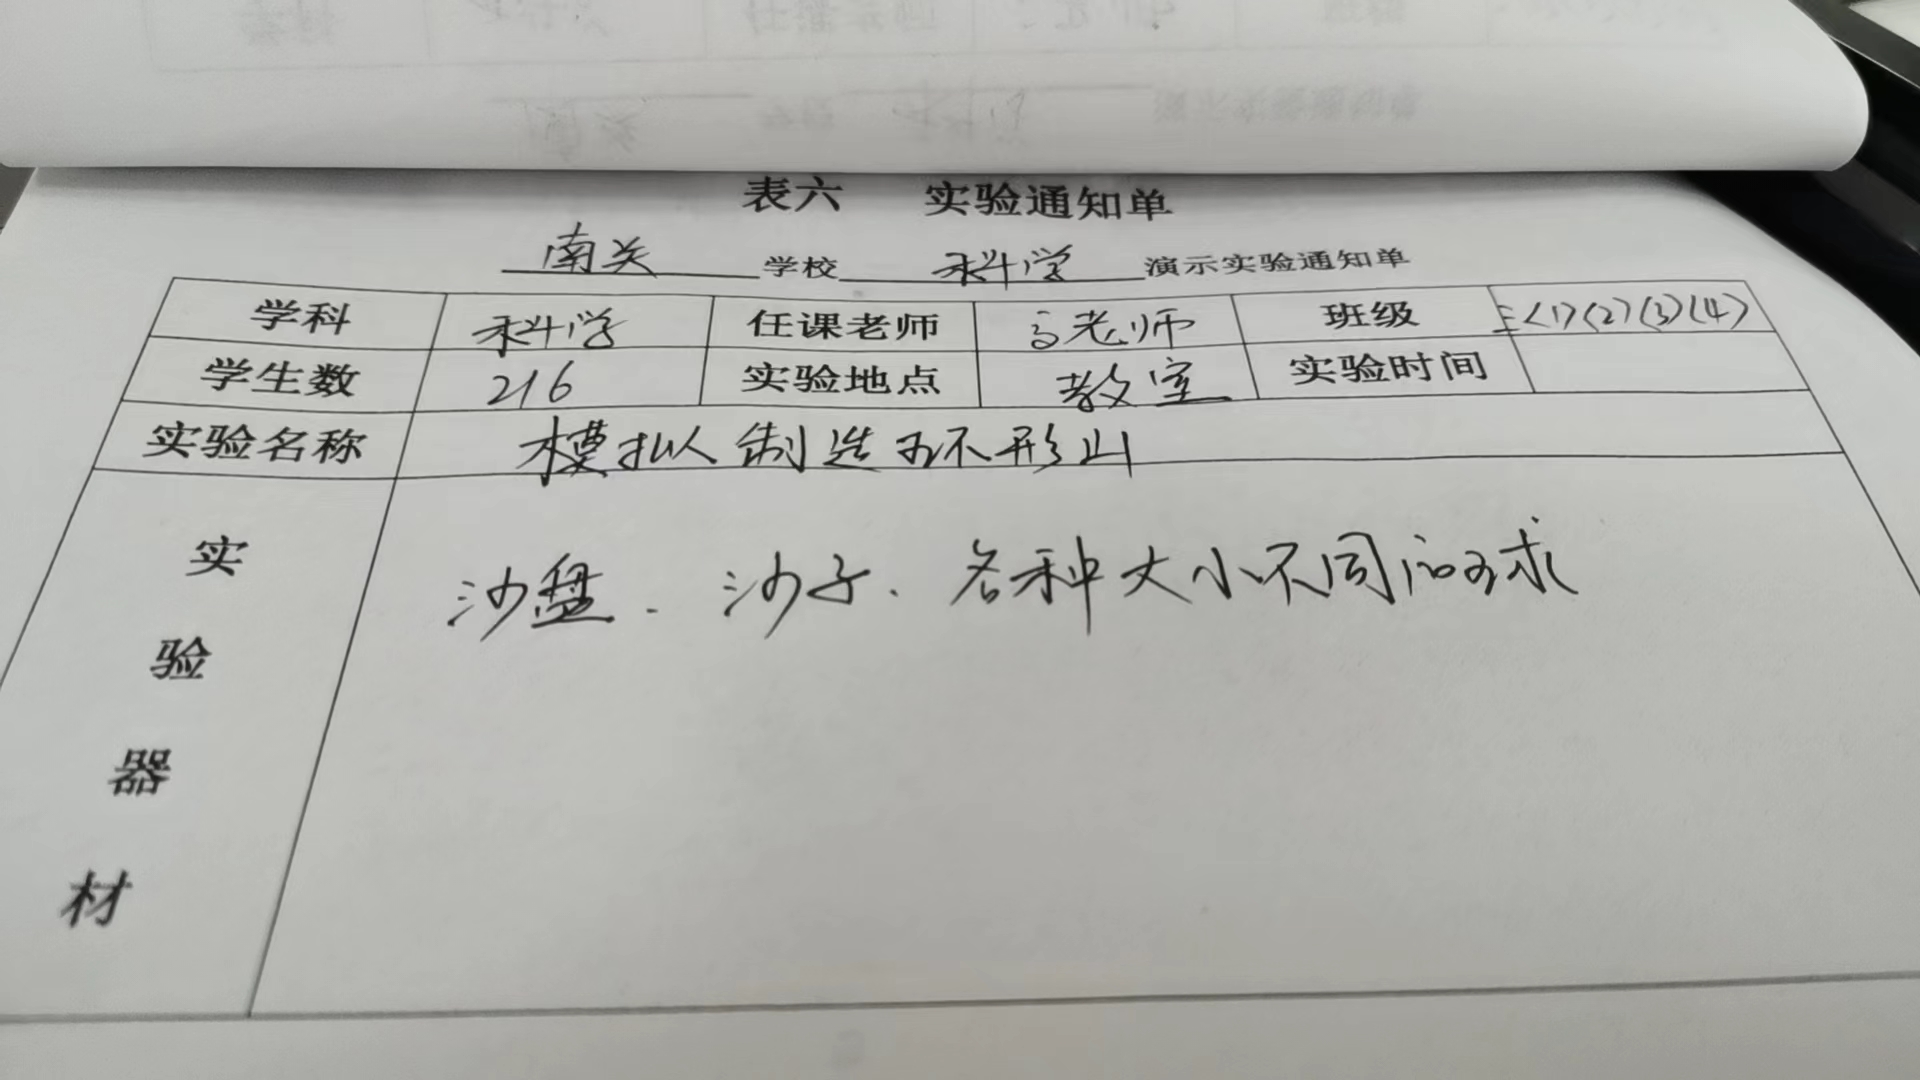 表六 实验通知单
南关 学校 科学 演示实验通知单
学科 科学 任课老师 高老师 班级 三(1)(2)(3)(4)
学生数 216 实验地点 教室 实验时间
实验名称 模拟制造环形山
实验器材 沙盘、沙子、各种大小不同的球